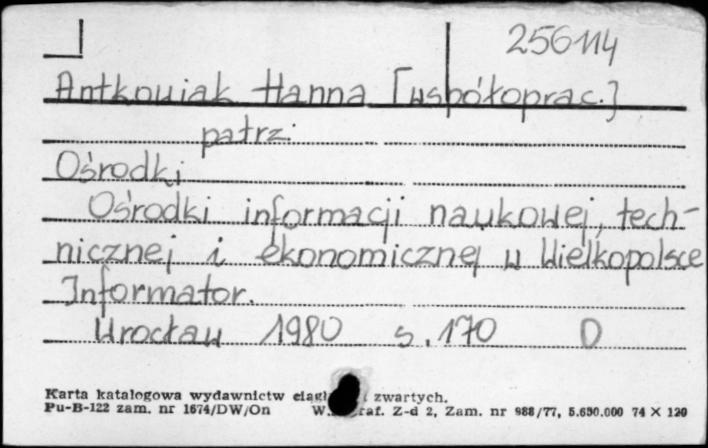 256114
Antkowiak Hanna [współoprac.]
patrz:
Ośrodki
Ośrodki informacji naukowej, tech-
nicznej i ekonomicznej w Wielkopolsce
Informator.
Wrocław 1980 s. 170 D
Karta katalogowa wydawnictw zwartych.
Pu-B-122 zam. nr 1674/DW/On Z-d 2, Zam. nr 988/77, 5.690.000 74 × 120